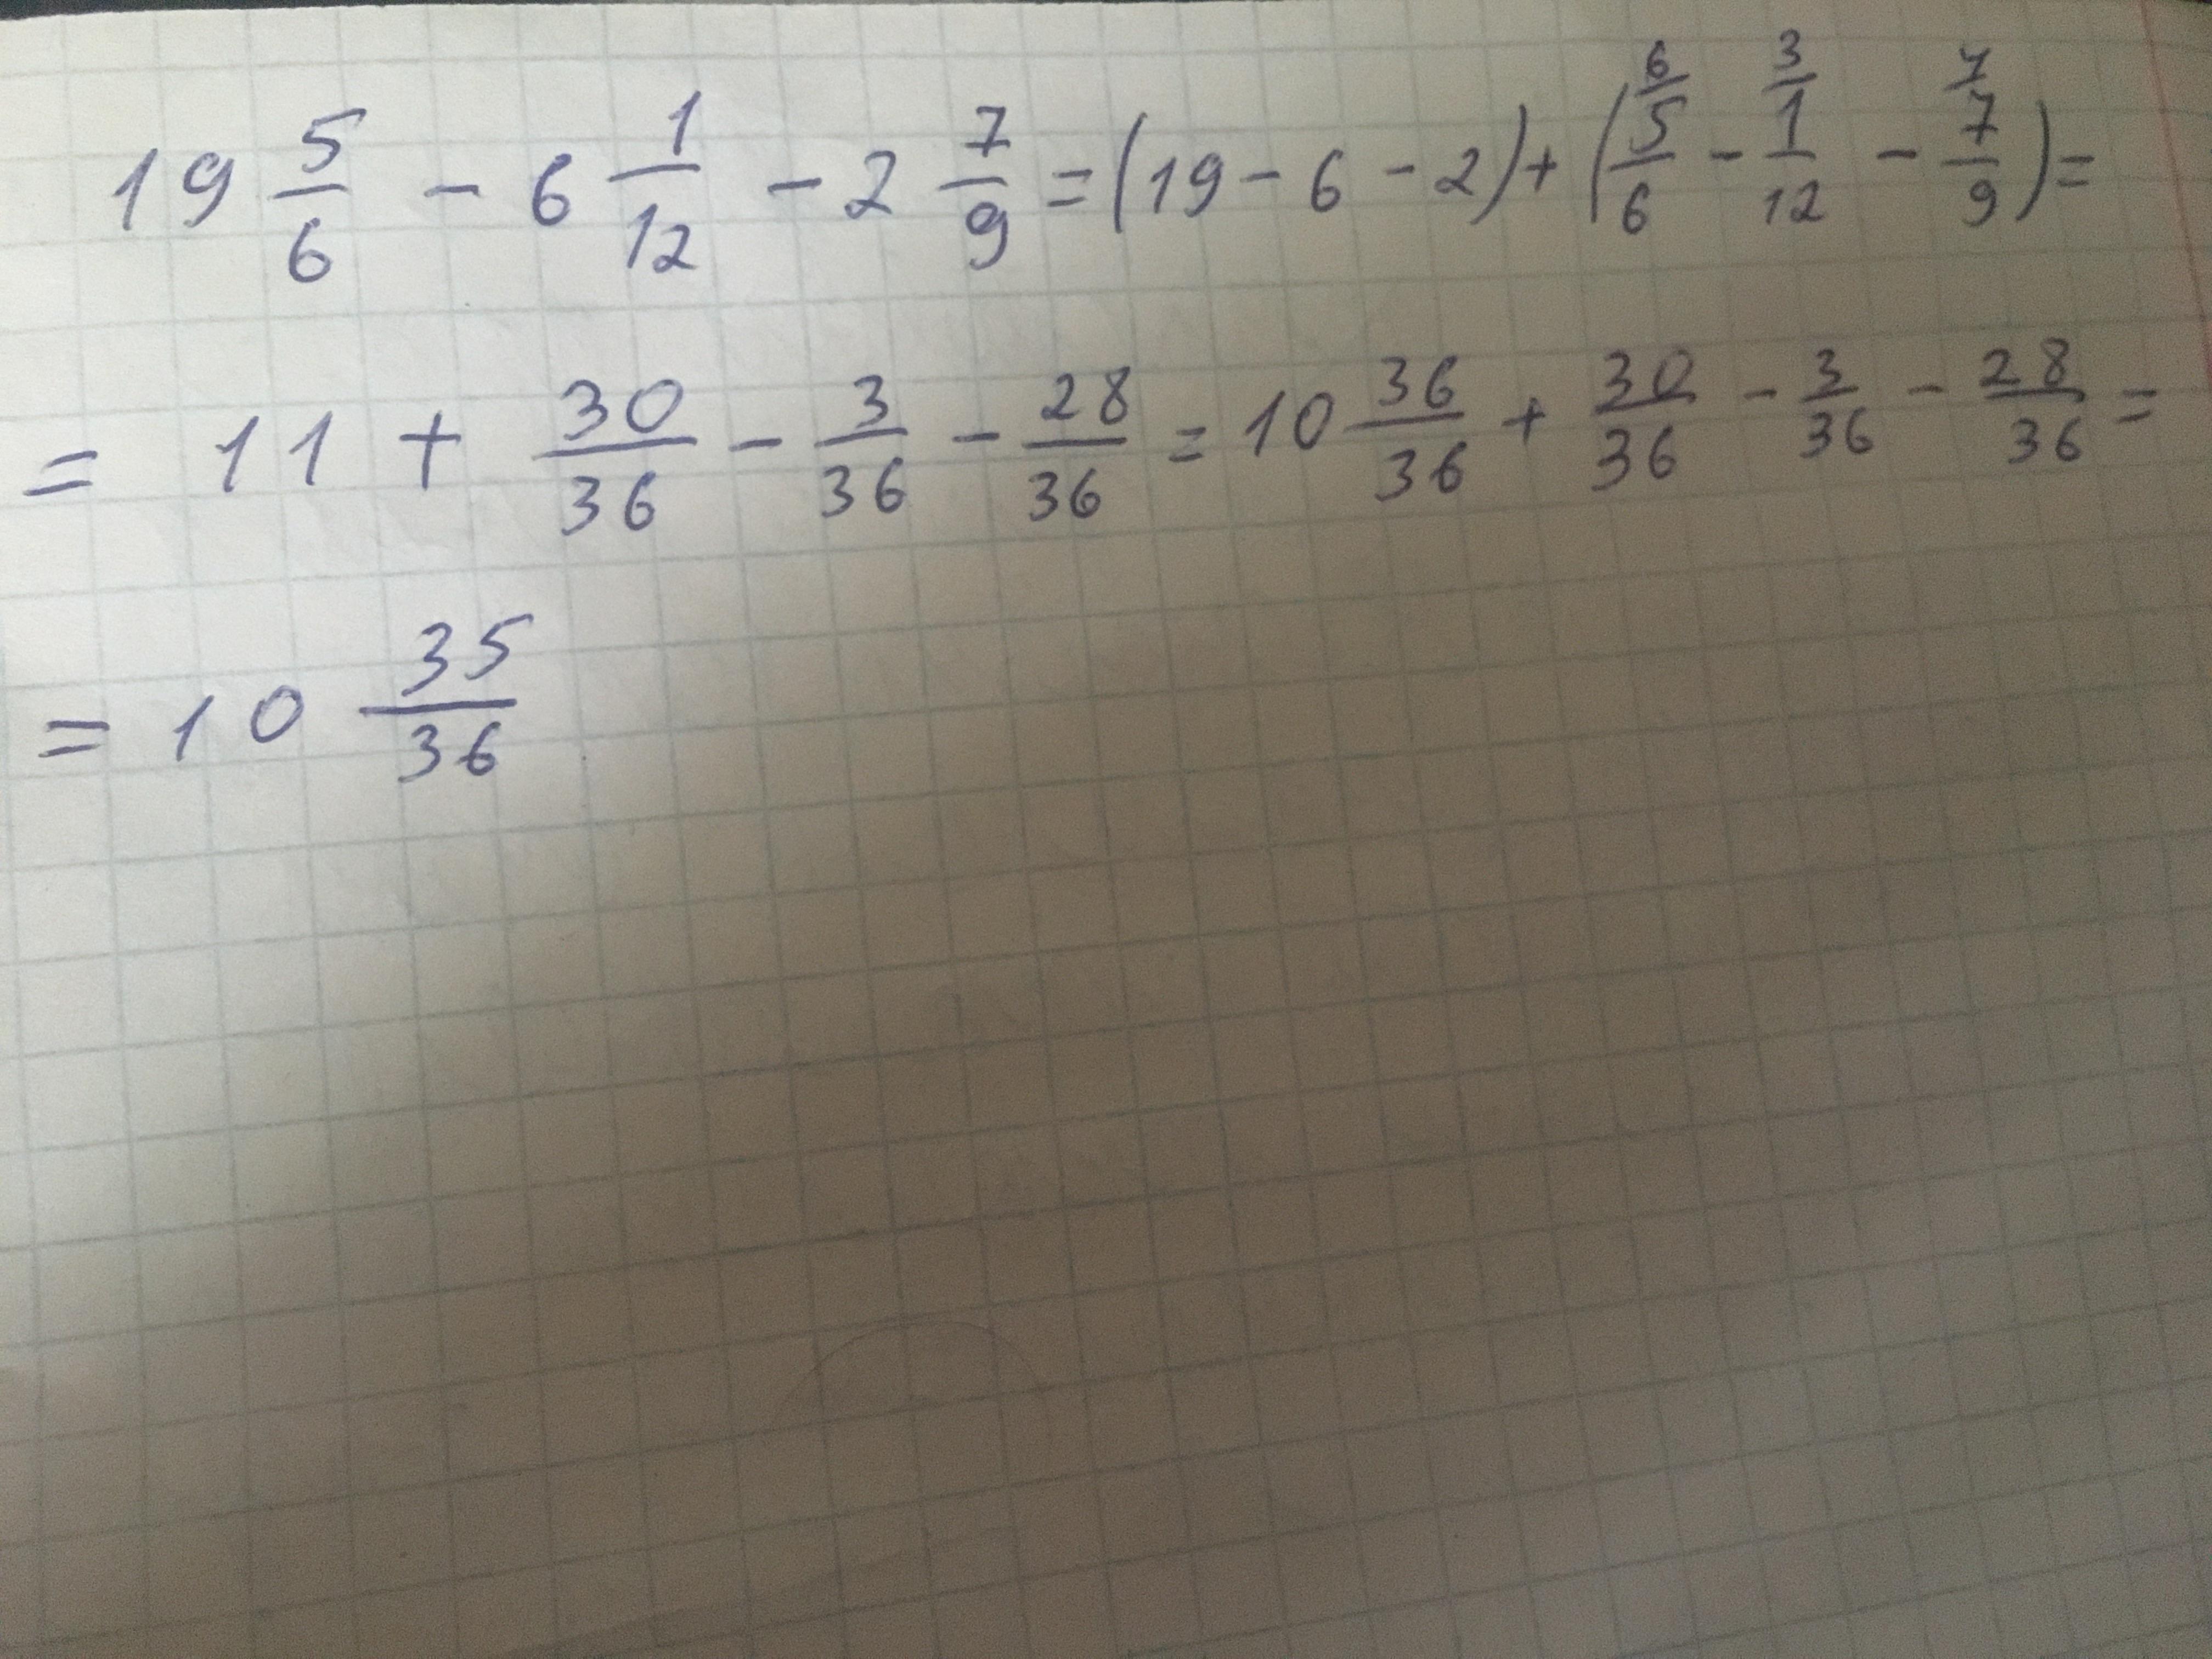 19 5/6 - 6 1/12 - 2 7/9 = (19 - 6 - 2) + (6/ 5/6 - 3/ 1/12 - 4/ 7/9) =
= 11 + 30/36 - 3/36 - 28/36 = 10 36/36 + 30/36 - 3/36 - 28/36 =
= 10 35/36